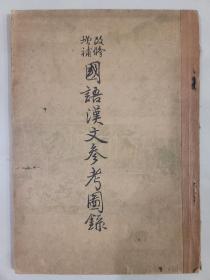 改修
增補
國語漢文參考圖錄